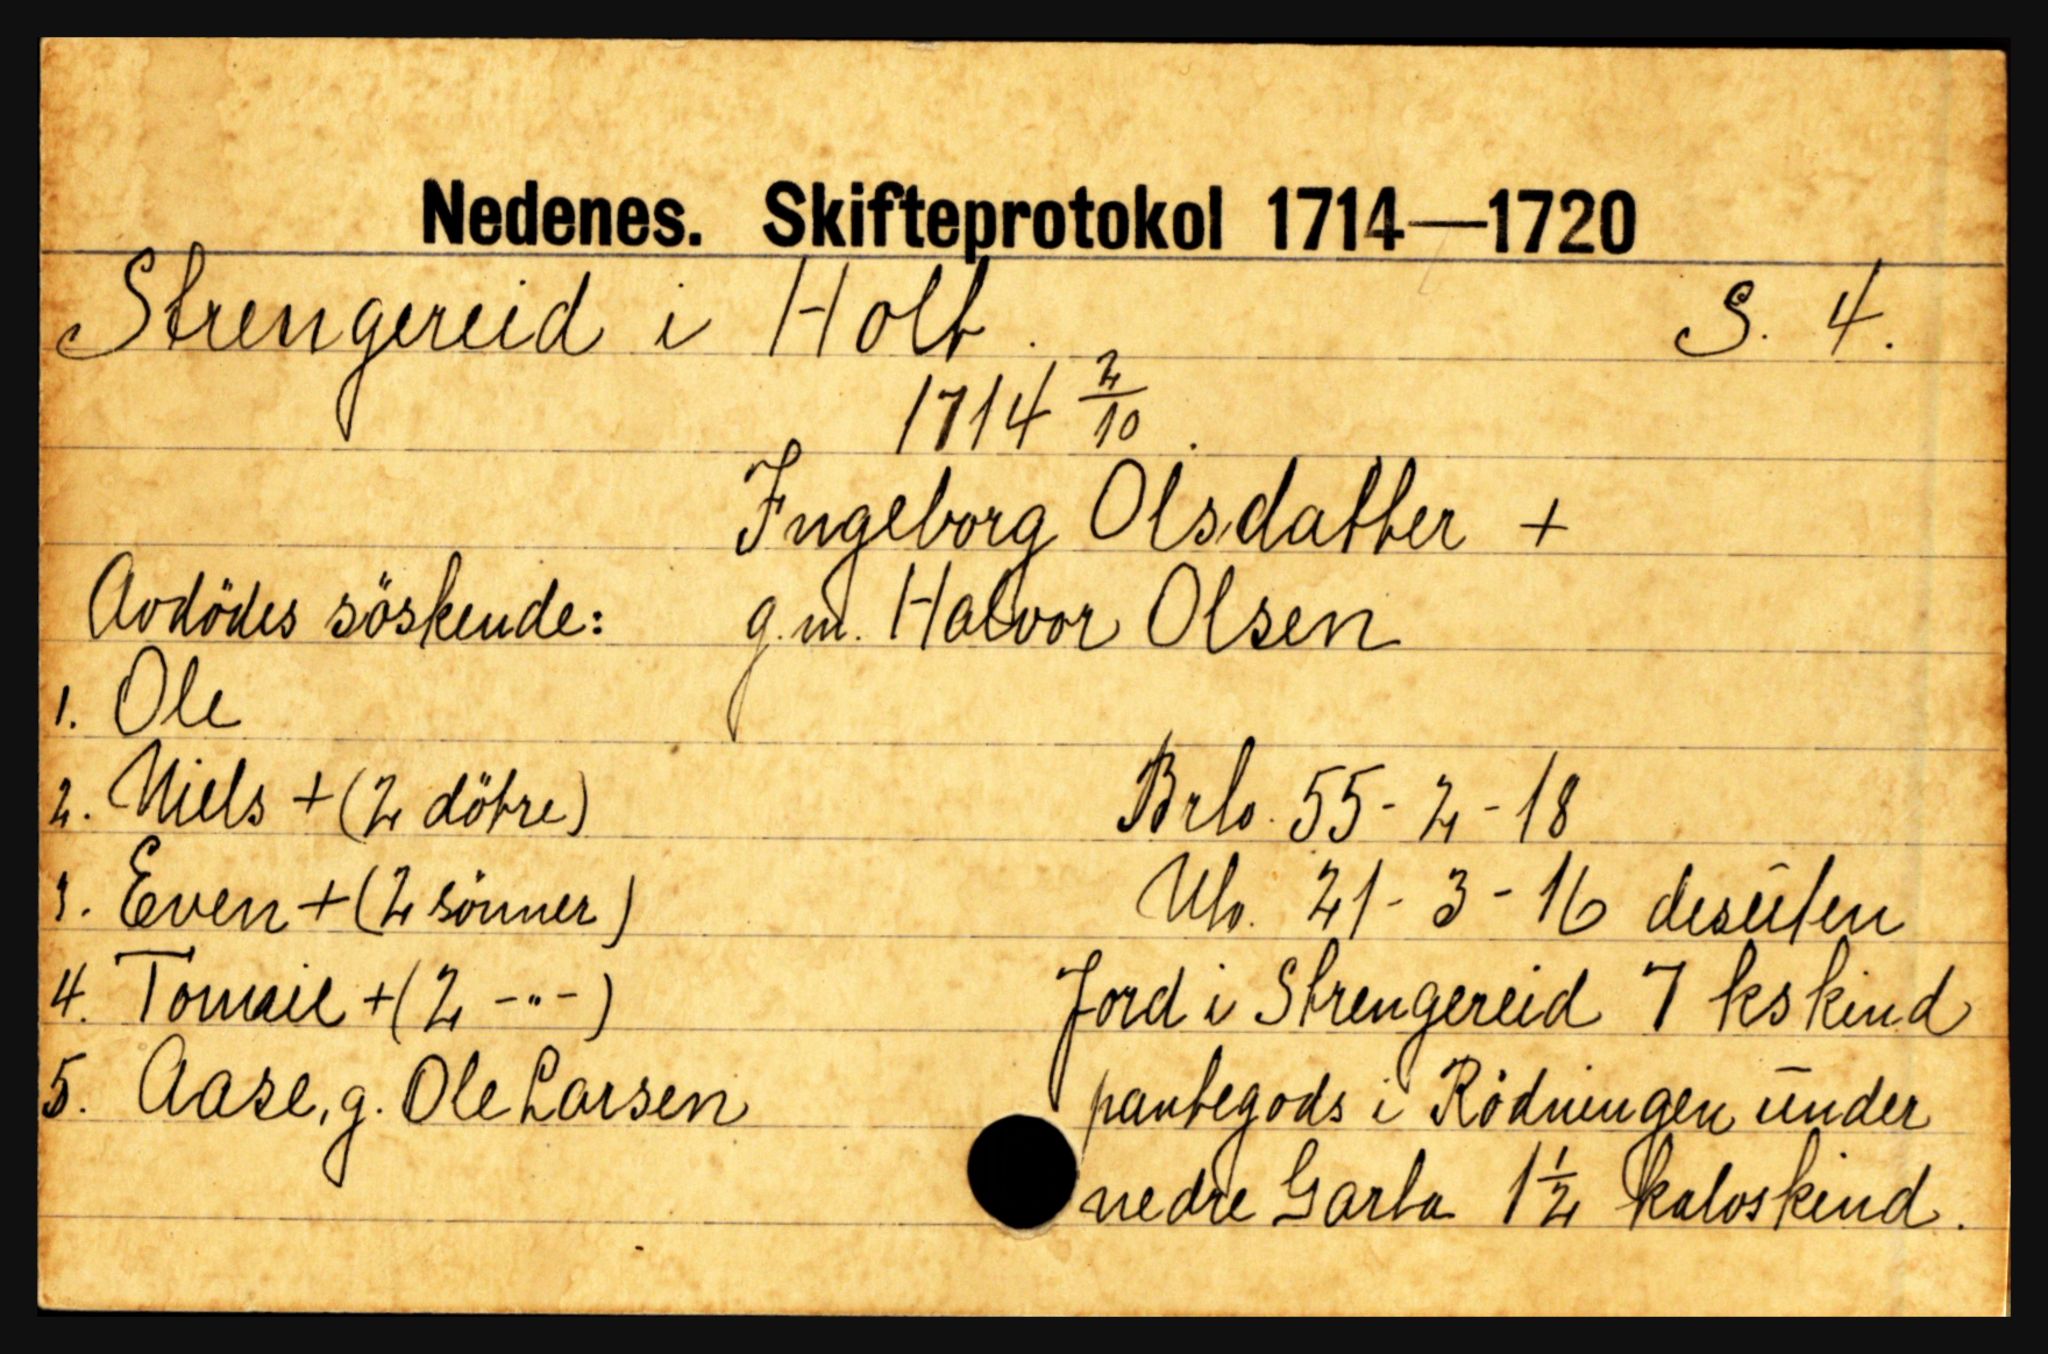 Nedenes. Skifteprotokol 1714—1720
Strengereid i Holt. S. 4.
1714 2/10.
Ingeborg Olsdatter +
Avdödes söskende: g.m. Halvor Olsen
1. Ole
2. Niels + (2 dötre) Brlo. 55-2-18
3. Even + (2 sönner) Nlo. 21-3-16 desuten
4. Tomas + (2 -"-) Jord i Strengereid 7 kskind
5. Aase, g. Ole Larsen pantegods i Rödningen under
nedre Garta 1½ kalvskind.